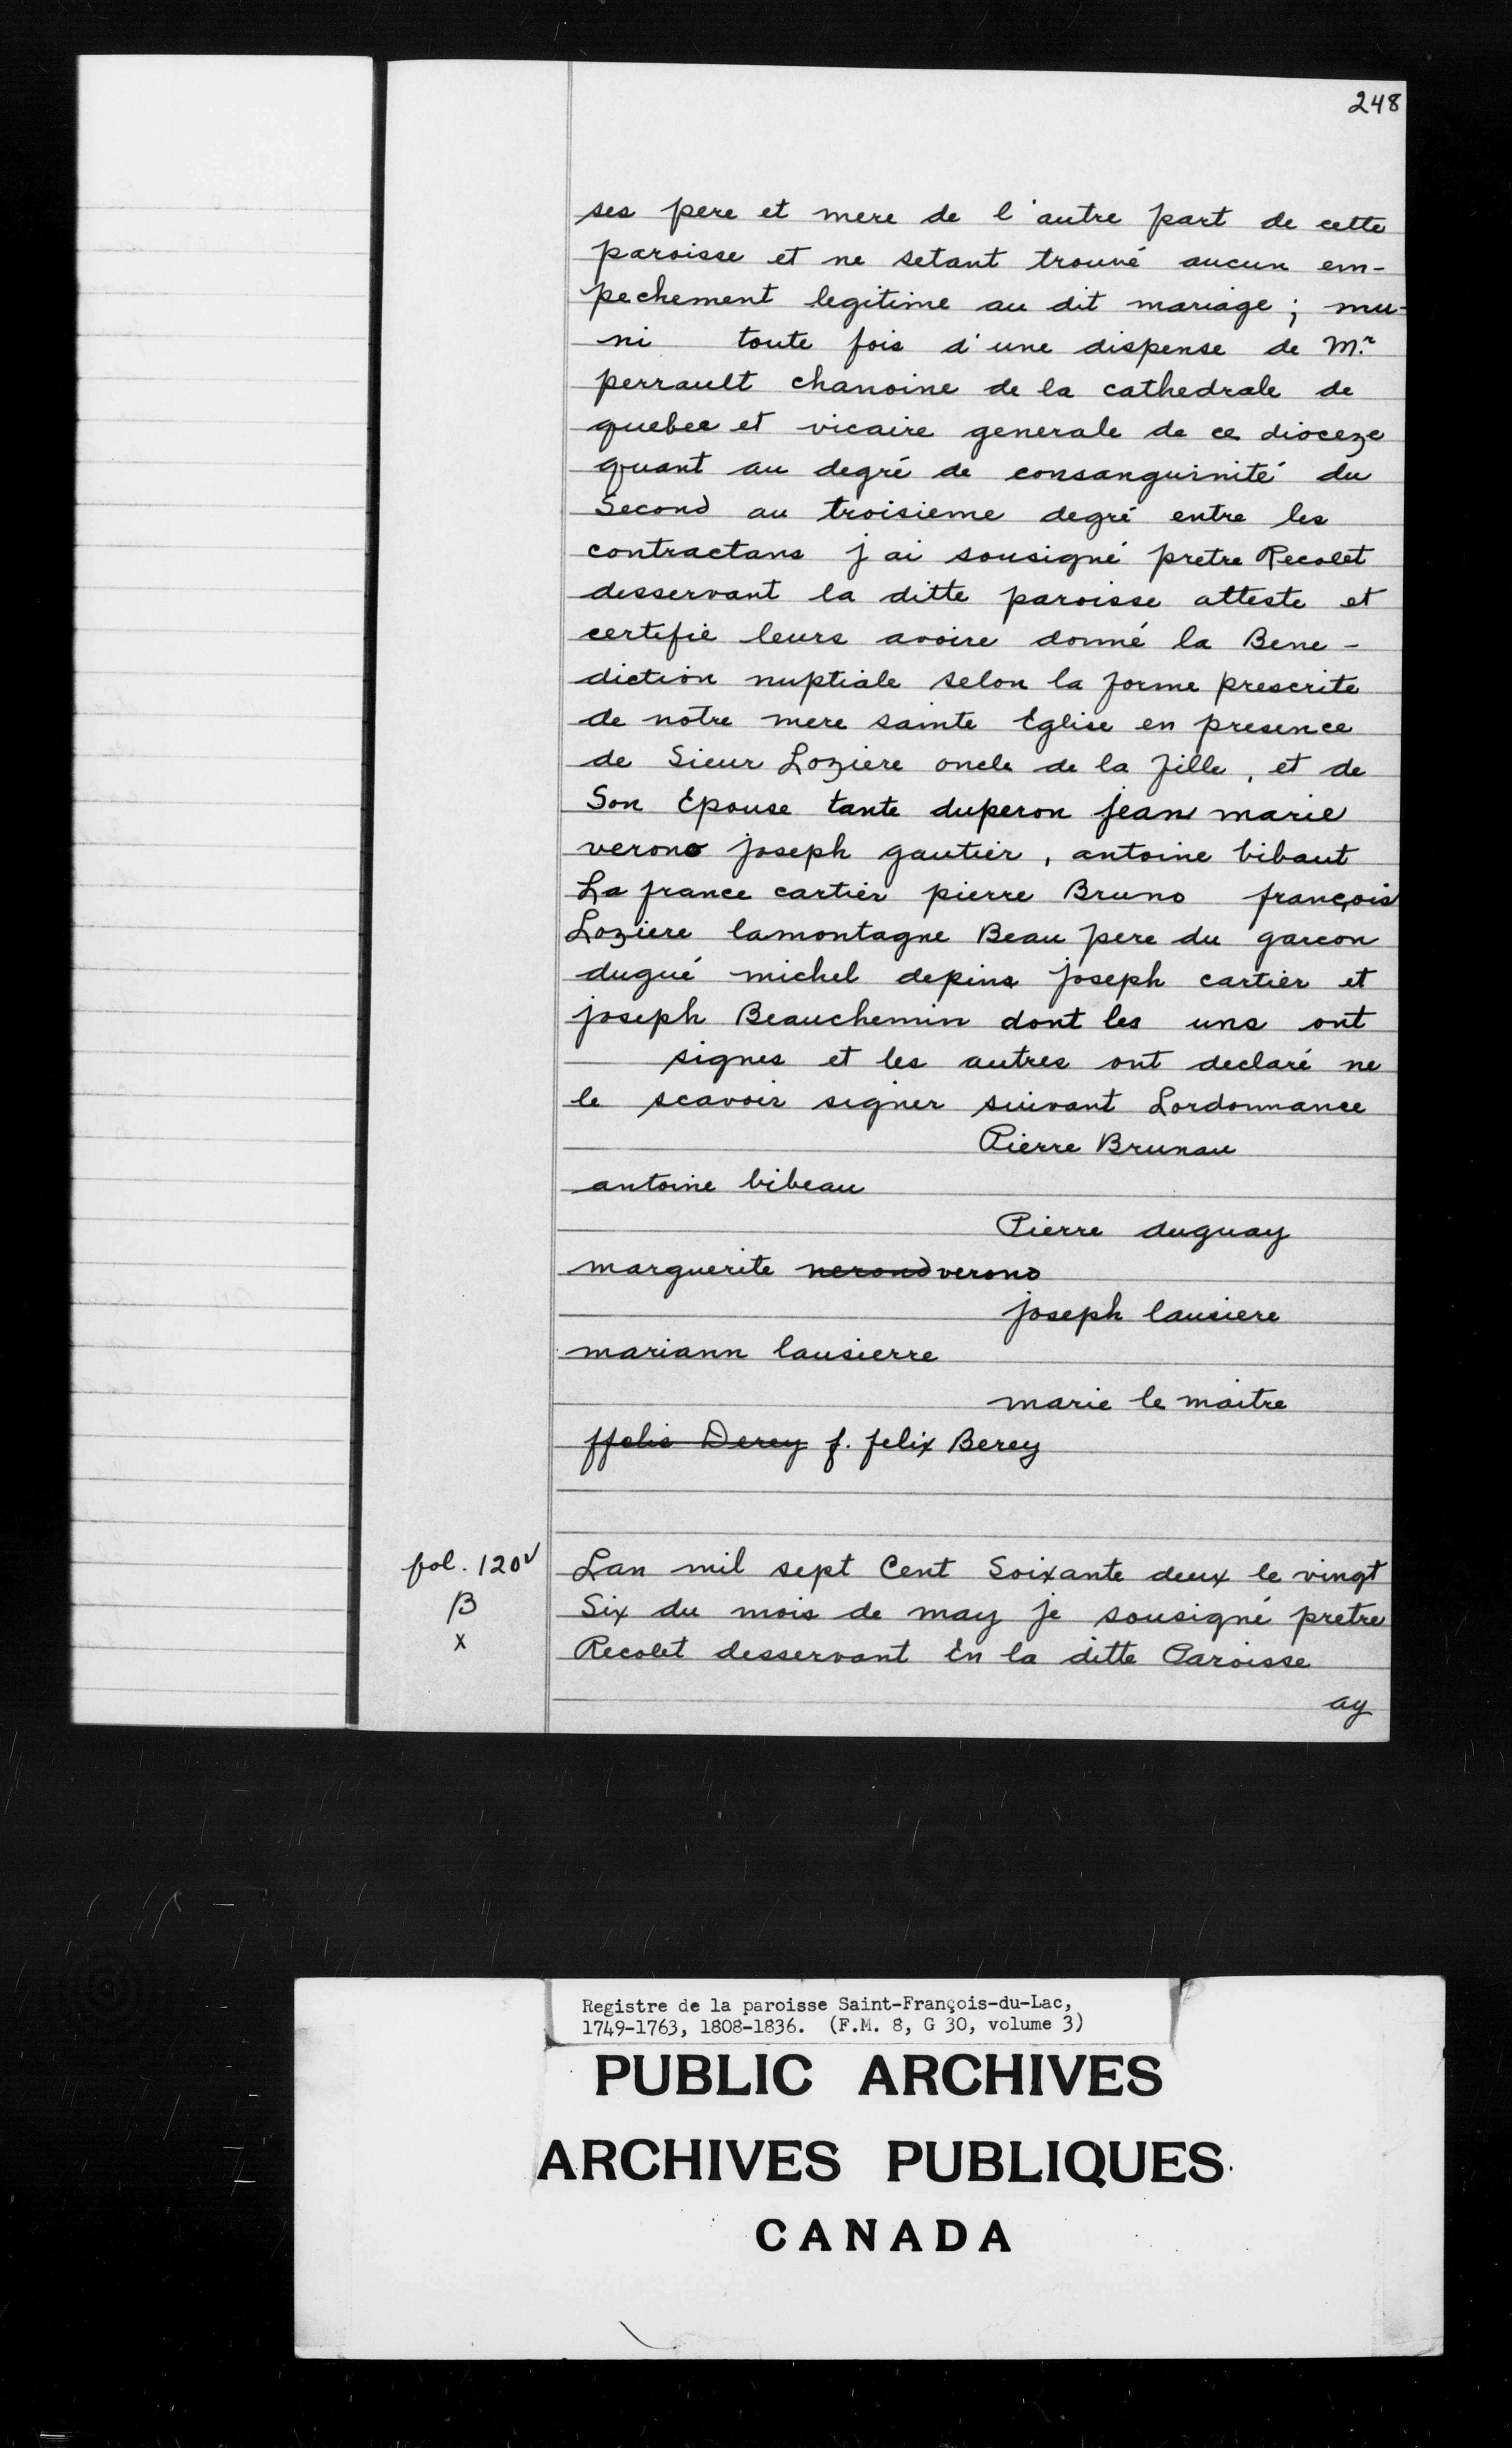 248
ses pere et mere de l'autre part de cette
paroisse et ne setant trouvé aucun em-
pechement legitime au dit mariage; mu-
ni toute fois d'une dispense de M.r
perrault chanoine de la cathedrale de
quebec et vicaire generale de ce dioceze
quant au degré de consanguinité du
Second au troisieme degré entre les
contractans j ai sousigné pretre Recolet
desservant la ditte paroisse atteste et
certifie leurs avoire donné la Bene-
diction nuptiale selon la forme prescrite
de notre mere sainte Eglise en presence
de Sieur Loziere oncle de la fille, et de
Son Epouse tante duperon jean marie
verono joseph gautier, antoine bibaut
La france cartier pierre Bruno françois
Loziere lamontagne Beau pere du garcon
dugué michel depins joseph cartier et
joseph Beauchemin dont les uns ont
signes et les autres ont declaré ne
le scavoir signer suivant Lordonnance
Pierre Brunau
antoine bibeau
Pierre duguay
marguerite nerond verono
joseph lausiere
mariann lausierre
marie le maitre
ffelis Derey f. felix Berey
fol. 120v Lan mil sept Cent Soixante deux le vingt
B Six du mois de may je sousigné pretre
x Recolet desservant En la ditte Paroisse
ay
Registre de la paroisse Saint-François-du-Lac,
1749-1763, 1808-1836. (F.M. 8, G 30, volume 3)
PUBLIC ARCHIVES
ARCHIVES PUBLIQUES
CANADA